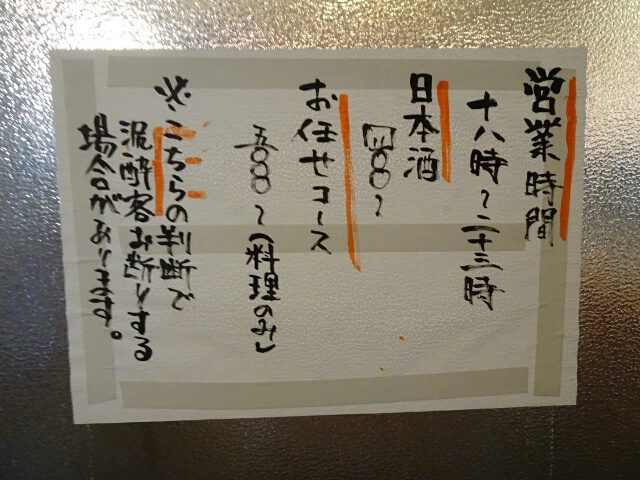 営業時間
十八時～二十三時
日本酒
四〇〇～
お任せコース
五〇〇〇～(料理のみ)
※こちらの判断で
泥酔客お断りする
場合があります。